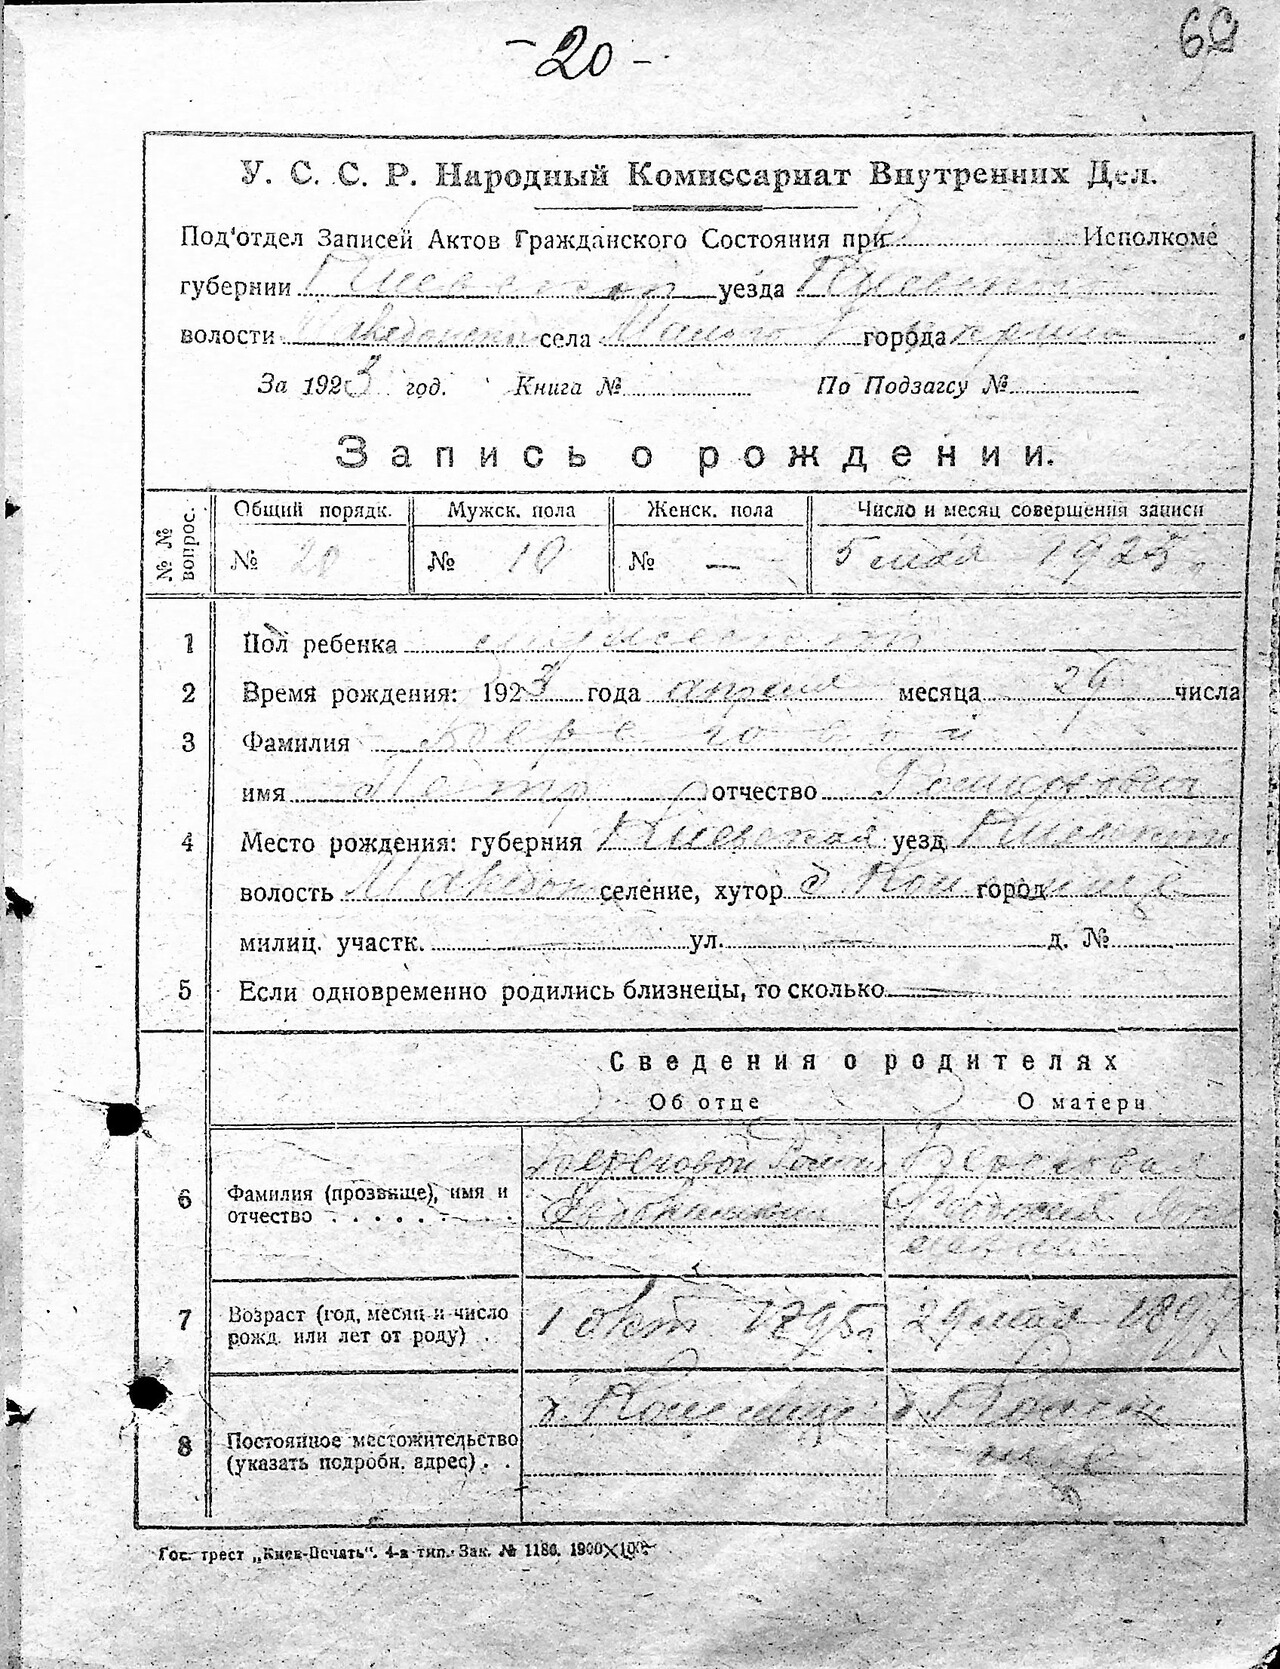 -20-
69
У. С. С. Р. Народный Комиссариат Внутренних Дел.
Под'отдел Записей Актов Гражданского Состояния при Исполкоме
губернии Киевской уезда Киевского
волости села города
За 1923 год. Книга № По Подзагсу №
Запись о рождении.
№ № вопрос. Общий порядк. Мужск. пола Женск. пола Число и месяц совершения записи
№ 20 № 10 № — 5 мая 1923 г.
1 Пол ребенка мужеский
2 Время рождения: 1923 года апреля месяца 29 числа
3 Фамилия Береговой
имя Петр отчество Романович
4 Место рождения: губерния Киевская уезд Киевский
волость Македон селение, хутор д город
милиц. участк. — ул. — д. №
5 Если одновременно родились близнецы, то сколько —
Сведения о родителях
Об отце О матери
6 Фамилия (прозвище), имя и отчество . . . . . . . . Береговой Роман Береговая
7 Возраст (год, месяц и число рожд. или лет от роду) . 1 окт 1895 г. 29 мая 1897
8 Постоянное местожительство (указать подробн. адрес) . . д. д.
Гос. трест „Киев-Печать". 4-я тип. Зак. № 1180. 1900×100